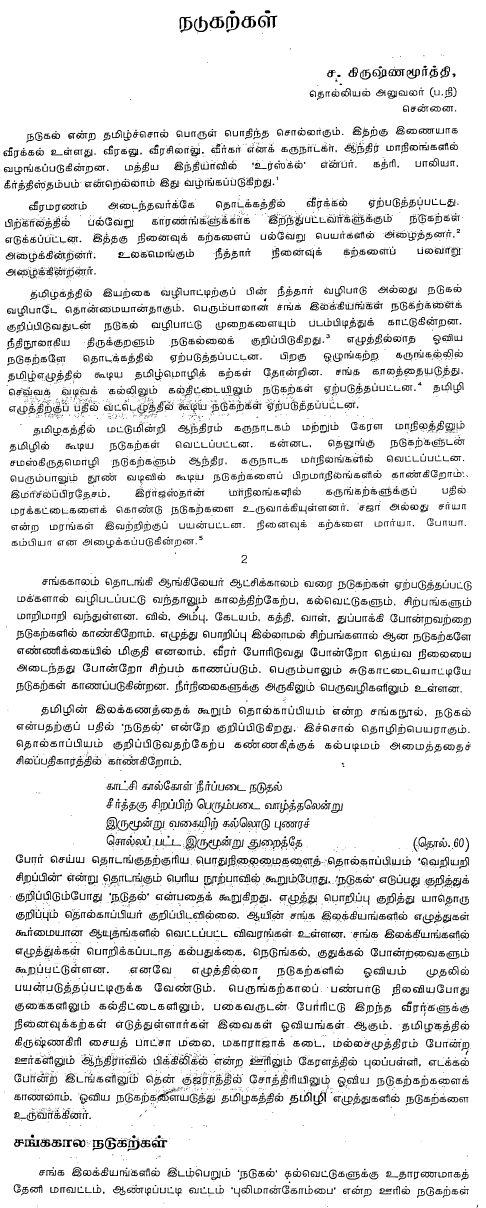 நடுகற்கள்
ச. கிருஷ்ணமூர்த்தி,
தொல்லியல் அலுவலர் (ப.நி)
சென்னை.
நடுகல் என்ற தமிழ்ச்சொல் பொருள் பொதிந்த சொல்லாகும். இதற்கு இணையாக
வீரக்கல் உள்ளது. வீரகலு, வீரசிலாலு, வீர்கா எனக் கருநாடகா, ஆந்திர மாநிலங்களில்
வழங்கப்படுகின்றன. மத்திய இந்தியாவில் 'உர்ஸ்கல்' என்பர். சுத்ரி, பாலியா,
கீர்த்திஸ்தம்பம் என்றெல்லாம் இது வழங்கப்படுகிறது.¹
வீரமரணம் அடைந்தவர்க்கே தொடக்கத்தில் வீரக்கல் ஏற்படுத்தப்பட்டது.
பிற்காலத்தில் பல்வேறு காரணங்களுக்காக இறந்துபட்டவர்களுக்கும் நடுகற்கள்
எடுக்கப்பட்டன. இத்தகு நினைவுக் கற்களைப் பல்வேறு பெயர்களில் அழைத்தனர்,²
அழைக்கின்றனர். உலகமெங்கும் நீத்தார் நினைவுக் கற்களைப் பலவாறு
அழைக்கின்றனர்.
தமிழகத்தில் இயற்கை வழிபாட்டிற்குப் பின் நீத்தார் வழிபாடு அல்லது நடுகல்
வழிபாடே தொன்மையானதாகும். பெரும்பாலான சங்க இலக்கியங்கள் நடுகற்களைக்
குறிப்பிடுவதுடன் நடுகல் வழிபாட்டு முறைகளையும் படம்பிடித்துக் காட்டுகின்றன.
நீதிநூலாகிய திருக்குறளும் நடுகல்லைக் குறிப்பிடுகிறது.³ எழுத்தில்லாத ஓவிய
நடுகற்களே தொடக்கத்தில் ஏற்படுத்தப்பட்டன. பிறகு ஒழுங்கற்ற கருங்கல்லில்
தமிழ்எழுத்தில் கூடிய தமிழ்மொழிக் கற்கள் தோன்றின. சங்க காலத்தையடுத்து,
செவ்வக வடிவக் கல்லிலும் கல்திட்டையிலும் நடுகற்கள் ஏற்படுத்தப்பட்டன.⁴ தமிழி
எழுத்திற்குப் பதில் வட்டெழுத்தில் கூடிய நடுகற்கள் ஏற்படுத்தப்பட்டன.
தமிழகத்தில் மட்டுமின்றி ஆந்திரம் கருநாடகம் மற்றும் கேரள மாநிலத்திலும்
தமிழில் கூடிய நடுகற்கள் வெட்டப்பட்டன. கன்னட, தெலுங்கு நடுகற்களுடன்
சமஸ்கிருதமொழி நடுகற்களும் ஆந்திர, கருநாடக மாநிலங்களில் வெட்டப்பட்டன.
பெரும்பாலும் தூண் வடிவில் கூடிய நடுகற்களைப் பிறமாநிலங்களில் காண்கிறோம்.
இமாசலப்பிரதேசம், இராஜஸ்தான் மாநிலங்களில் கருங்கற்களுக்குப் பதில்
மரக்கட்டைகளைக் கொண்டு நடுகற்களை உருவாக்கியுள்ளனர். சஜர் அல்லது சர்யா
என்ற மரங்கள் இவற்றிற்குப் பயன்பட்டன. நினைவுக் கற்களை மார்யா, போயா,
கம்பியா என அழைக்கப்படுகின்றன.⁵
2
சங்ககாலம் தொடங்கி ஆங்கிலேயர் ஆட்சிக்காலம் வரை நடுகற்கள் ஏற்படுத்தப்பட்டு
மக்களால் வழிபடப்பட்டு வந்தாலும் காலத்திற்கேற்ப, கல்வெட்டுகளும், சிற்பங்களும்
மாறிமாறி வந்துள்ளன. வில், அம்பு, கேடயம், கத்தி, வாள், துப்பாக்கி போன்றவற்றை
நடுகற்களில் காண்கிறோம். எழுத்து பொறிப்பு இல்லாமல் சிற்பங்களால் ஆன நடுகற்களே
எண்ணிக்கையில் மிகுதி எனலாம். வீரர் போரிடுவது போன்றோ தெய்வ நிலையை
அடைந்தது போன்றோ சிற்பம் காணப்படும். பெரும்பாலும் சுடுகாட்டையொட்டியே
நடுகற்கள் காணப்படுகின்றன. நீர்நிலைகளுக்கு அருகிலும் பெருவழிகளிலும் உள்ளன.
தமிழின் இலக்கணத்தைக் கூறும் தொல்காப்பியம் என்ற சங்கநூல், நடுகல்
என்பதற்குப் பதில் 'நடுதல்' என்றே குறிப்பிடுகிறது. இச்சொல் தொழிற்பெயராகும்.
தொல்காப்பியம் குறிப்பிடுவதற்கேற்ப கண்ணகிக்குக் கல்படிமம் அமைத்ததைச்
சிலப்பதிகாரத்தில் காண்கிறோம்.
காட்சி கால்கோள் நீர்ப்படை நடுதல்
சீர்த்தகு சிறப்பிற் பெரும்படை வாழ்த்தலென்று
இருமூன்று வகையிற் கல்லொடு புணரச்
சொல்லப் பட்ட இருமூன்று துறைத்தே (தொல். 60)
போர் செய்ய தொடங்குதற்குரிய பொதுநிலைமைகளைத் தொல்காப்பியம் 'வெறியறி
சிறப்பின்' என்று தொடங்கும் பெரிய நூற்பாவில் கூறும்போது, 'நடுகல்' எடுப்பது குறித்துக்
குறிப்பிடும்போது 'நடுதல்' என்பதைக் கூறுகிறது. எழுத்து பொறிப்பு குறித்து யாதொரு
குறிப்பும் தொல்காப்பியர் குறிப்பிடவில்லை. ஆயின் சங்க இலக்கியங்களில் எழுத்துகள்
கூர்மையான ஆயுதங்களில் வெட்டப்பட்ட விவரங்கள் உள்ளன. சங்க இலக்கியங்களில்
எழுத்துக்கள் பொறிக்கப்படாத கல்பதுக்கை, நெடுங்கல், குதுக்கல் போன்றவைகளும்
கூறப்பட்டுள்ளன. எனவே எழுத்தில்லா நடுகற்களில் ஓவியம் முதலில்
பயன்படுத்தப்பட்டிருக்க வேண்டும். பெருங்கற்காலப் பண்பாடு நிலவியபோது
குகைகளிலும் கல்திட்டைகளிலும், பகைவருடன் போரிட்டு இறந்த வீரர்களுக்கு
நினைவுக்கற்கள் எடுத்துள்ளார்கள் இவைகள் ஓவியங்கள் ஆகும். தமிழகத்தில்
கிருஷ்ணகிரி சையத் பாட்சா மலை, மகாராஜாக் கடை, மல்லசமுத்திரம் போன்ற
ஊர்களிலும் ஆந்திராவில் பிக்கிலிகல் என்ற ஊரிலும் கேரளத்தில் புலப்பள்ளி, எடக்கல்
போன்ற இடங்களிலும் தென் குஜராத்தில் சோத்திரியிலும் ஓவிய நடுகற்கற்களைக்
காணலாம். ஓவிய நடுகற்களையடுத்து தமிழகத்தில் தமிழி எழுத்துகளில் நடுகற்களை
உருவாக்கினர்.
சங்ககால நடுகற்கள்
சங்க இலக்கியங்களில் இடம்பெறும் 'நடுகல்' கல்வெட்டுகளுக்கு உதாரணமாகத்
தேனி மாவட்டம், ஆண்டிப்பட்டி வட்டம் 'புலிமான்கோம்பை' என்ற ஊரில் நடுகற்கள்